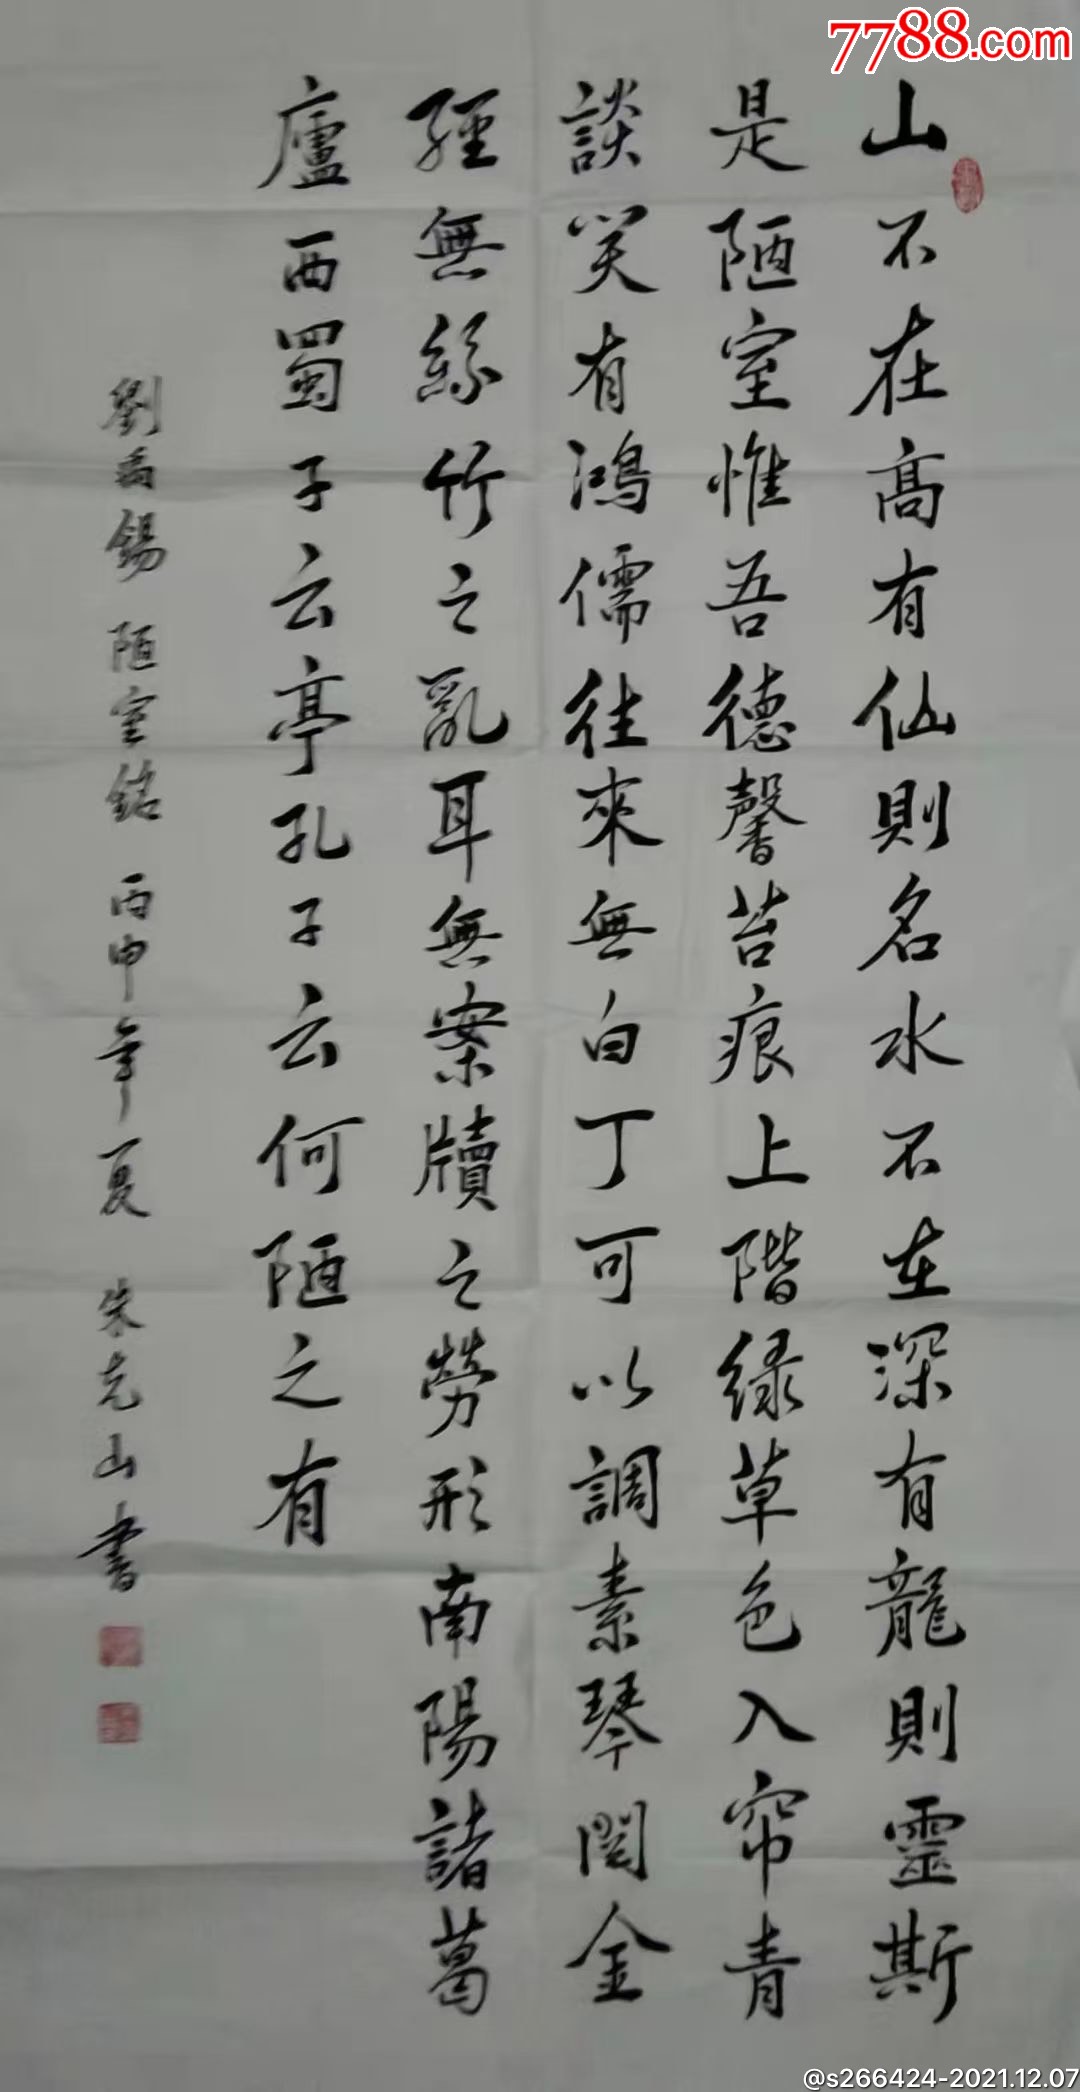 7788.com
山不在高有仙則名水不在深有龍則靈斯
是陋室惟吾德馨苔痕上階緑草色入帘青
談笑有鴻儒往來無白丁可以調素琴閱金
經無絲竹之亂耳無案牘之勞形南陽諸葛
廬西蜀子云亭孔子云何陋之有
劉禹錫 陋室銘 丙申年夏 朱克山書
@s266424-2021.12.07